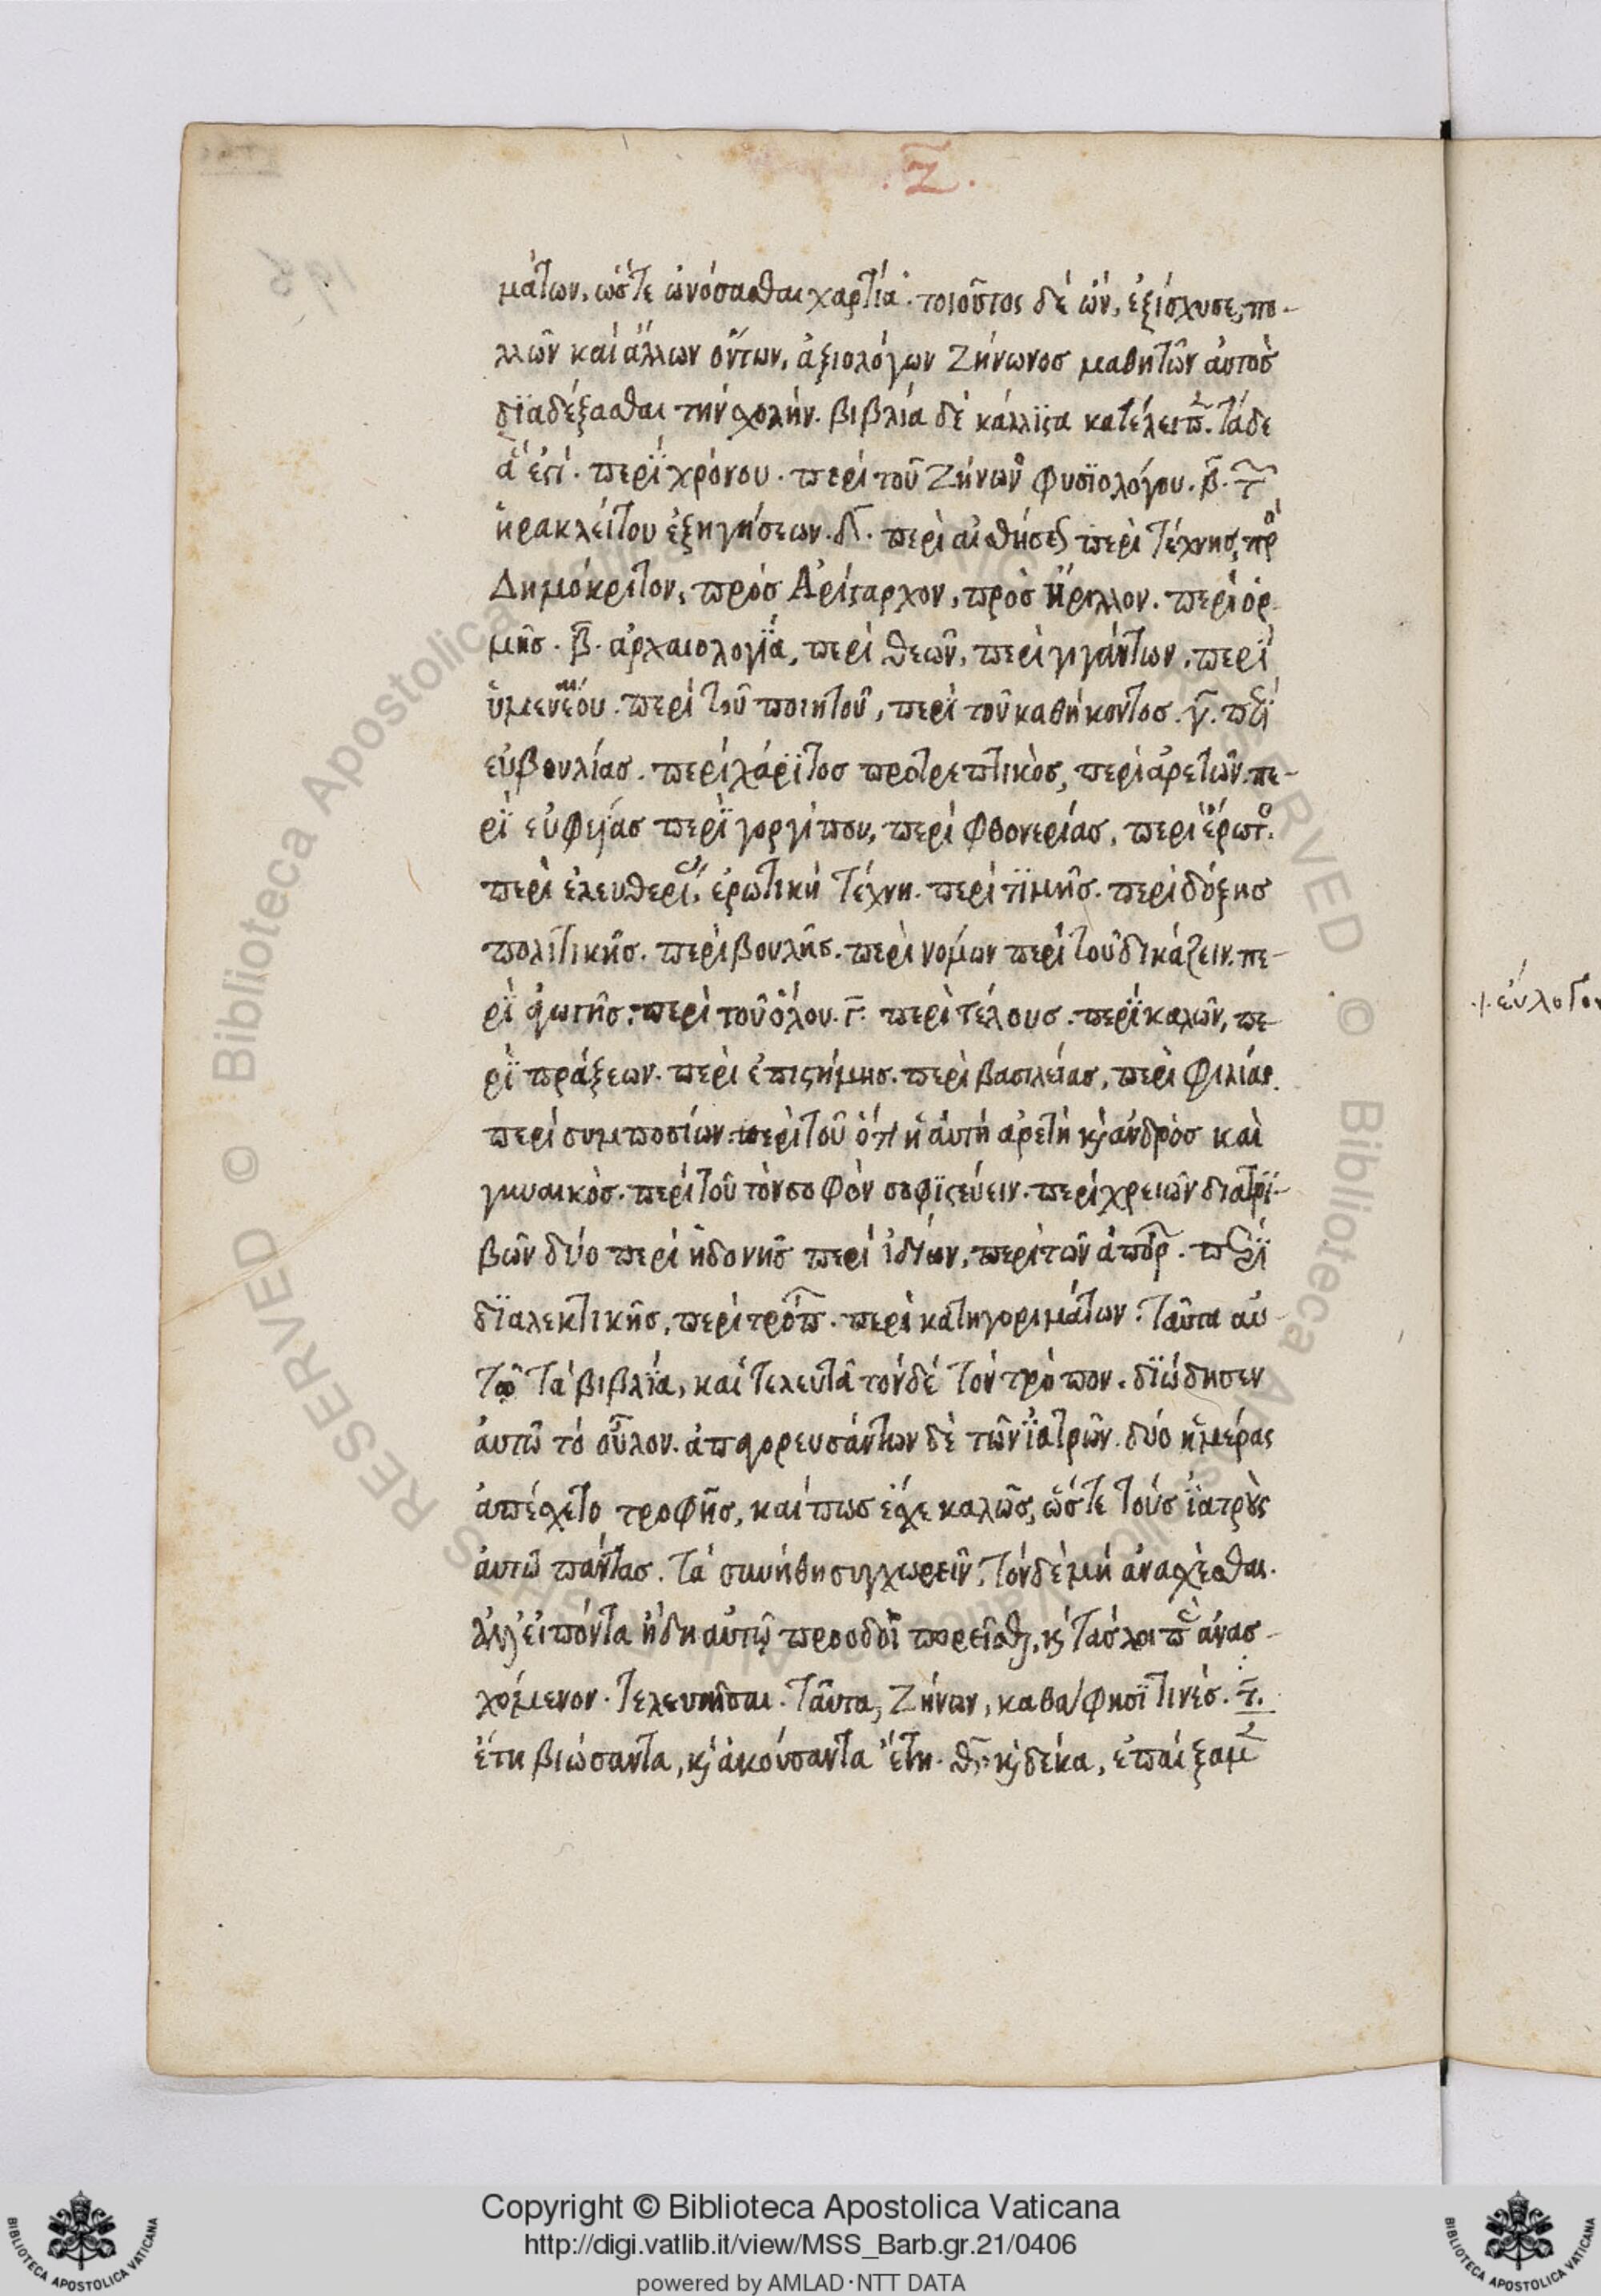 .ζ̅.
μάτων, ὥστε ὠνόσασθαι χαρτία. τοιοῦτος δέ ὤν, ἐξίσχυσε, πο-
λλῶν καί ἄλλων ὄντων, ἀξιολόγων Ζήνωνοσ μαθητῶν ἀυτοσ
δϊαδέξασθαι τήν σχολήν. βιβλία δέ κάλλϊστα κατέλειπ. τάδε
ἅ ἐστί. περϊ χρόνου. περί τοῦ Ζήνωνο φυσϊολόγου. β̅. τ̅
ἡρακλείτου ἐξηγήσεων. δ̅. περὶ αἰσθήσε περὶ τέχνης, πρ
Δημόκριτον, πρόσ Ἀρίσταρχον, πρὸσ ἥριλλον. περί ὁρ-
μῆσ. β̅. ἀρχαιολογΐα, περί θεῶν, περί γιγάντων, περϊ
ὑμεναίου. περί τοῦ ποιητοῦ, περί τοῦ καθήκοντοσ. γ̅. πϊ
εὐβουλίασ. περί χάρϊτοσ προτρεπτικὸσ, περὶ ἀρετῶν. πε-
ρϊ εὐφεϊασ περϊ γοργίππου, περί φθονερίασ, περί ἔρωτο.
περὶ ἐλευθερί, ἐρωτική τέχνη. περί τϊμῆσ. περί δόξησ
πολιτικῆσ. περί βουλῆσ. περὶ νόμων περί τοῦ δικάζειν. πε-
ρϊ ἀγωγῆσ. περὶ τοῦ ὅλου. Γ̅. περὶ τέλουσ. περϊ καλῶν, πε-
ρϊ πράξεων. περὶ ἐπιστήμησ. περὶ βασιλείασ, περὶ φιλίασ.
περί συμποσίων. περὶ τοῦ ὅτι ἡ ἀυτή ἀρετή κ̀ ἀνδρὸσ καὶ
γυναικὸσ. περί τοῦ τὸν σοφὸν σοφϊστεύειν. περί χρειῶν διατρϊ-
βῶν δύο περί ἡδονησ περί ἰδίων, περί τῶν ἀπόρ. πρϊ
δϊαλεκτικῆσ, περί τρόπ. περί κατηγοριμάτων. ταῦτα αὐ
τῶ τά βιβλΐα, καί τελευτᾶ τόνδέ τόν τρόπον. δϊώδησεν
ἀυτῶ τό οὖλον. ἀπαγορευσάντων δὲ τῶν ἰατρῶν. δύο ἡμέρας
ἀπέσχετο τροφῆσ, καί πωσ ἔσχε καλῶσ, ὥστε τούσ ἰατροὺς
ἀυτῶ πάντασ. τά συνήθη συγχωρεῖν, τόν δέ μή ἀνασχέσθαι.
ἀλλ εἰπόντα ἤδη αὐτῷ προοδοῖ πορεῖσθ, κ̀ τάσ λοιπ ἀνασ-
χόμενον. τελευτῆσαι. ταῦτα, Ζήνων, καθά φησϊ τινέσ. τ̅.
ἔτη βιώσαντα, κ̀ ἀκούσαντα ἔτη. θ̅. κ̀ δέκα, ἐπαίξαμ
Copyright © Biblioteca Apostolica Vaticana
http://digi.vatlib.it/view/MSS_Barb.gr.21/0406
powered by AMLAD·NTT DATA